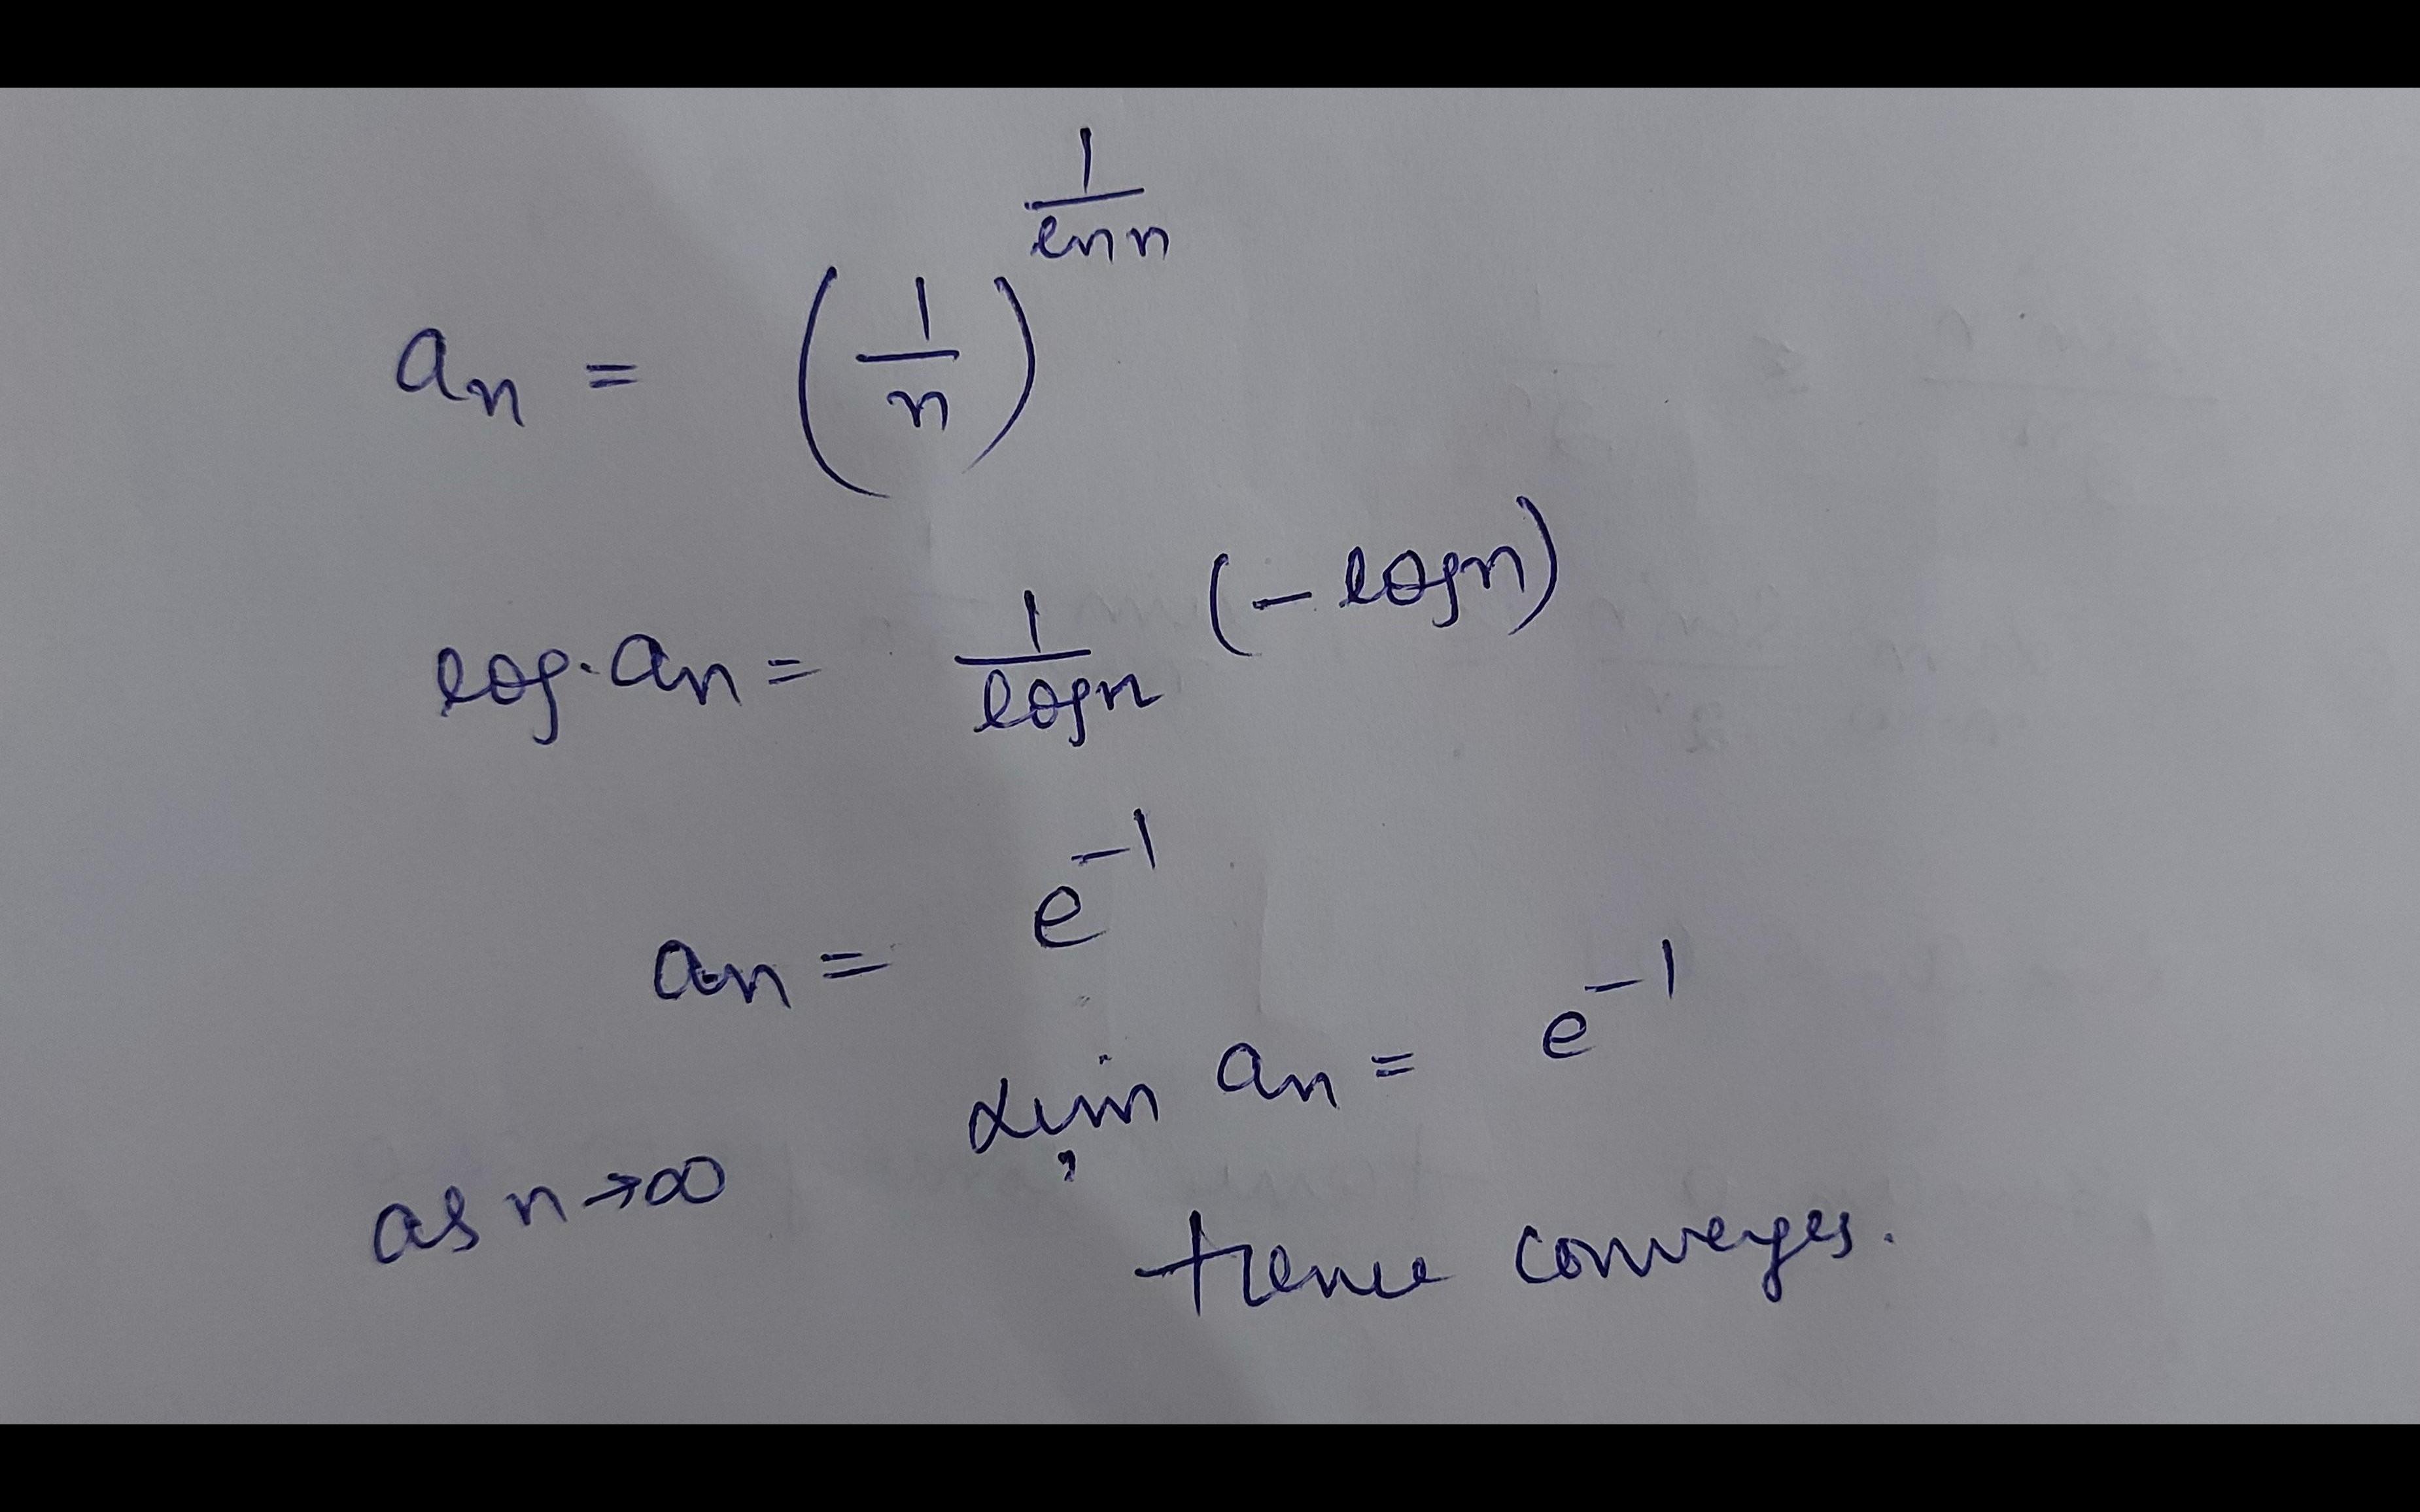 aₙ = (1/n)^(1/ln n)
log. aₙ = 1/log n (- log n)
aₙ = e⁻¹
as n → ∞, Lim aₙ = e⁻¹
Hence converges.